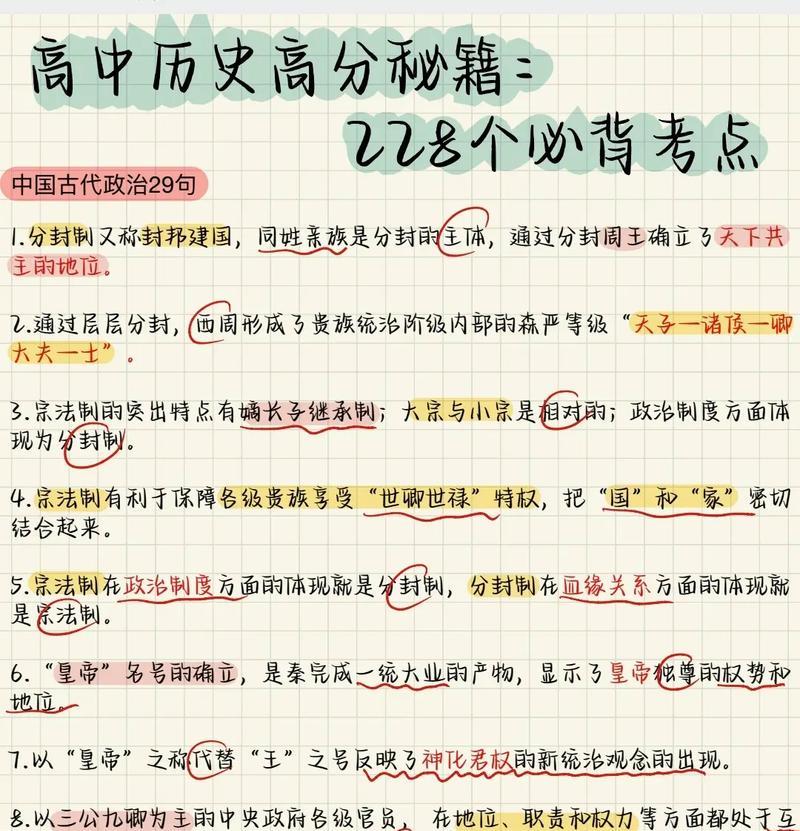 高中历史高分秘籍：
228个必背考点
中国古代政治29句
1.分封制又称封邦建国，同姓亲族是分封的主体，通过分封周王确立了天下共
主的地位。
2.通过层层分封，西周形成了贵族统治阶级内部的森严等级“天子一诸侯一卿
大夫一士”。
3.宗法制的突出特点有嫡长子继承制；大宗与小宗是相对的；政治制度方面体
现为分封制。
4.宗法制有利于保障各级贵族享受“世卿世禄”特权，把“国”和“家”密切
结合起来。
5.宗法制在政治制度方面的体现就是分封制，分封制在血缘关系方面的体现就
是宗法制。
6.“皇帝”名号的确立，是秦完成一统大业的产物，显示了皇帝独尊的权势和
地位。
7.以“皇帝”之称代替“王”之号反映了神化君权的新统治观念的出现。
8.以三公九卿为主的中央政府各级官员，在地位、职责和权力等方面都处于互